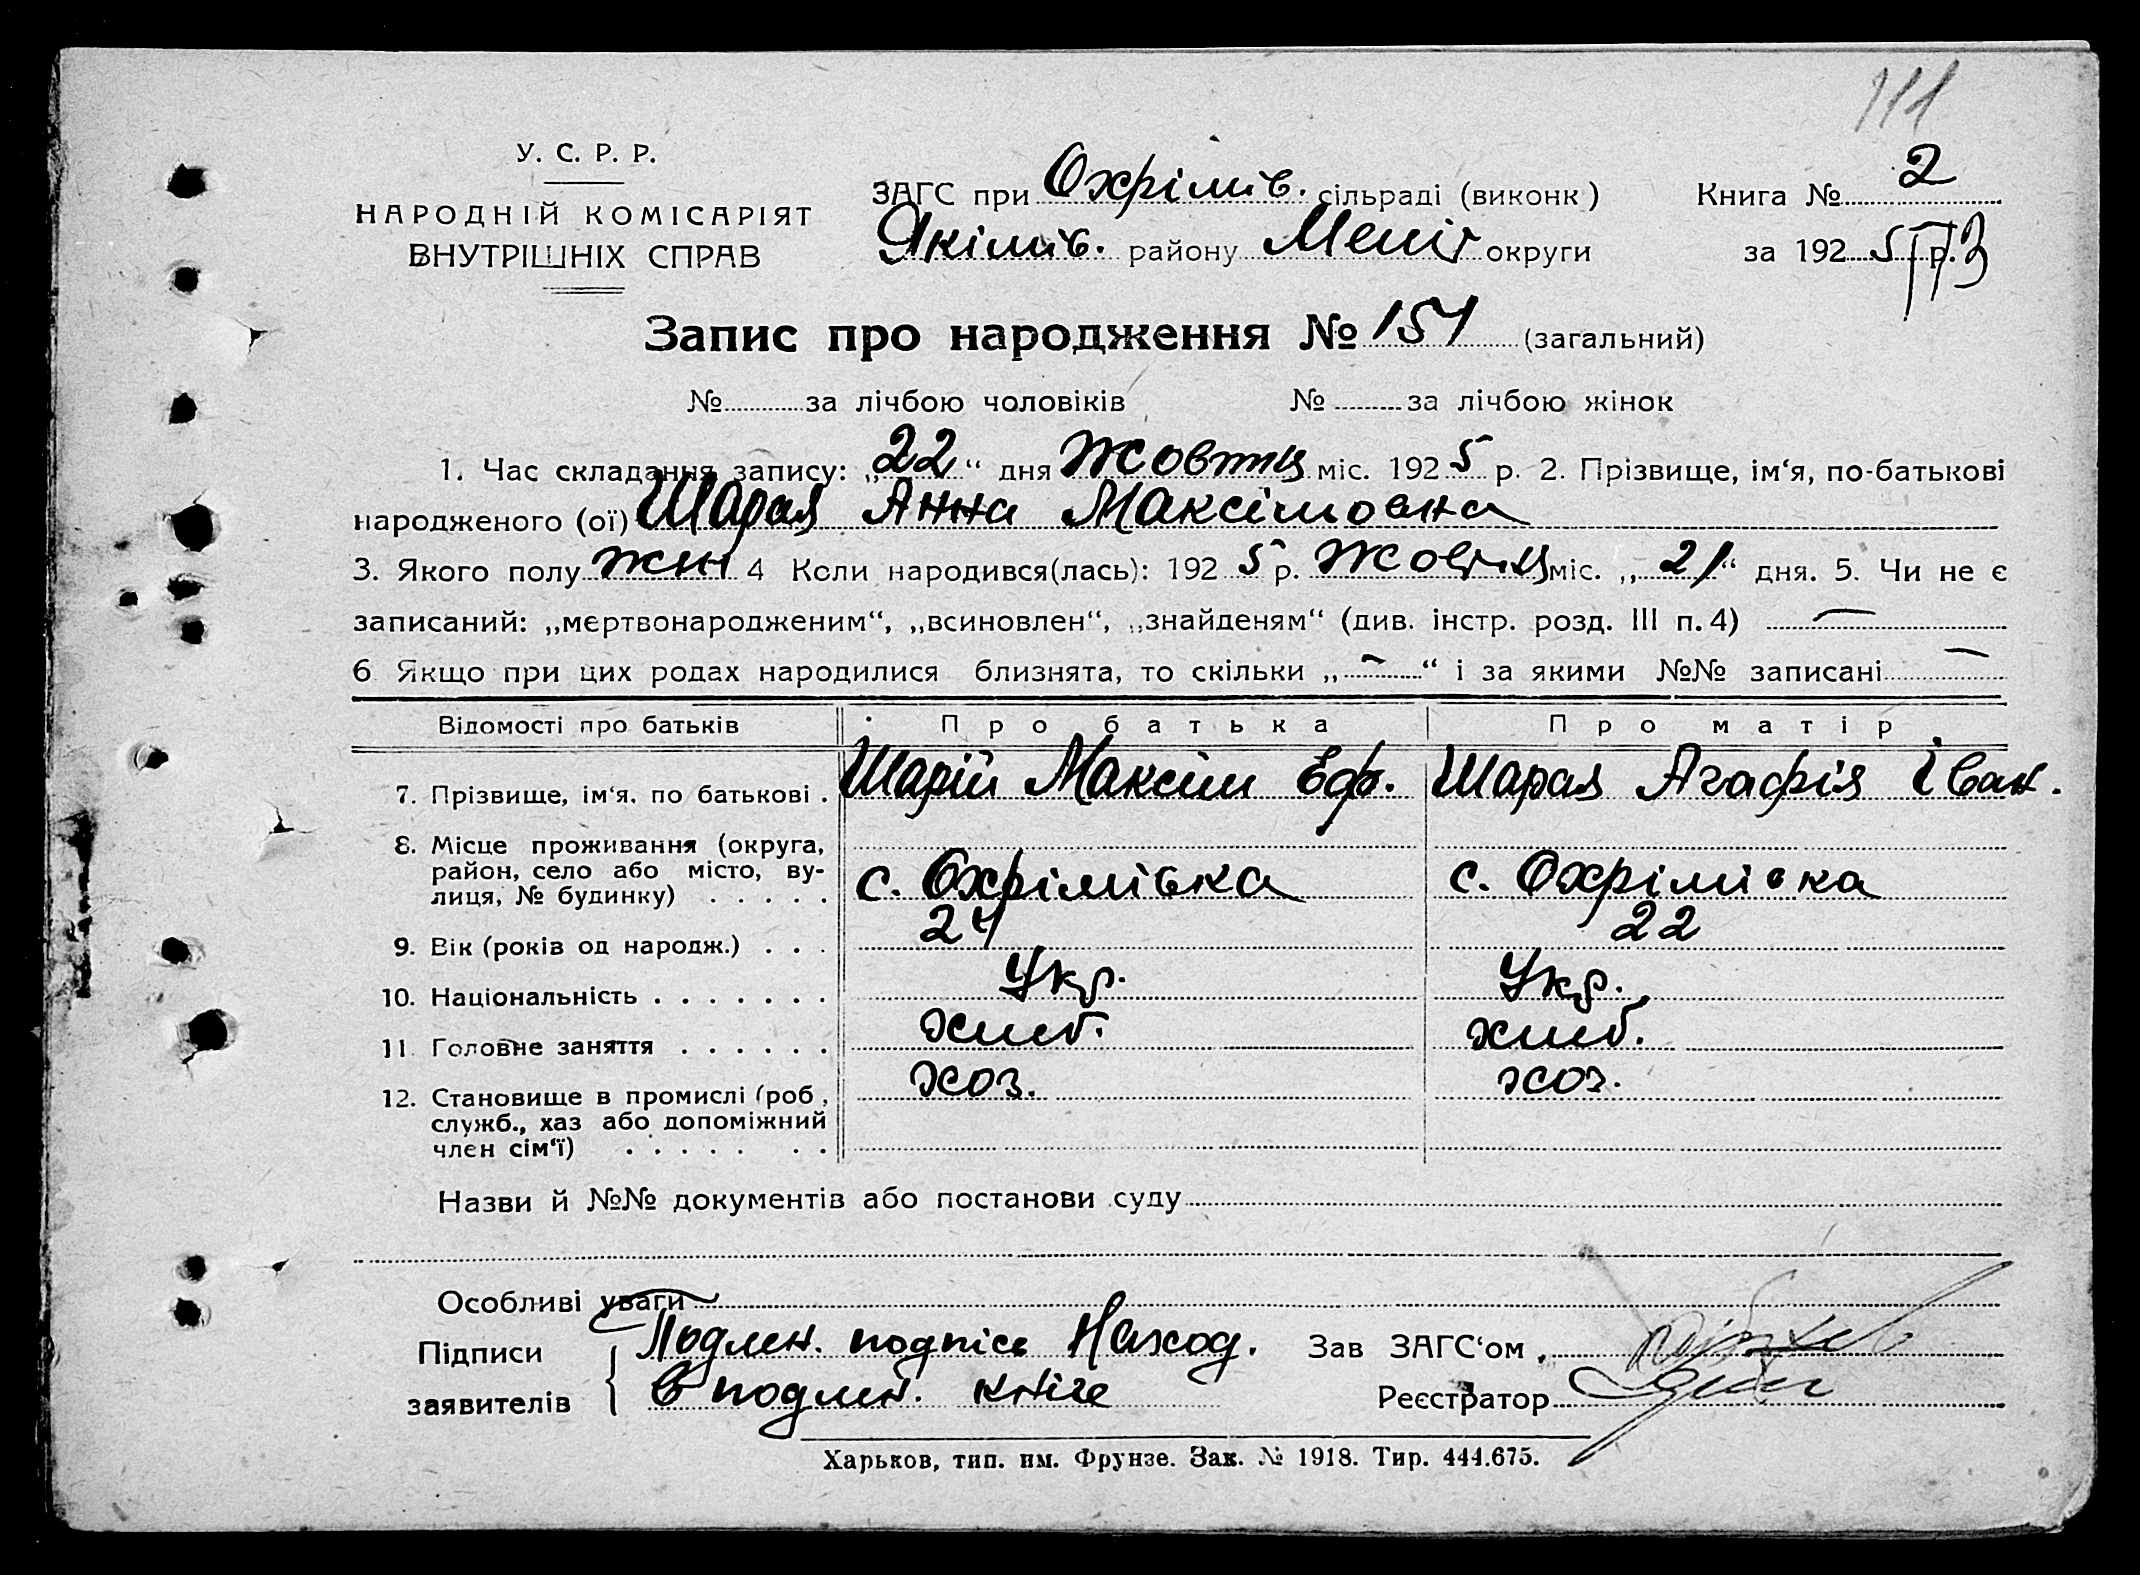 111
У. С. Р. Р.
НАРОДНІЙ КОМІСАРІЯТ
ВНУТРІШНІХ СПРАВ
ЗАГС при Охрімів. сільраді (виконк)
Якімів. району Меліт округи
Книга № 2
за 1925 р.
Запис про народження № 151 (загальний)
№ за лічбою чоловіків № за лічбою жінок
1. Час складання запису: „22“ дня Жовтц міс. 1925 р. 2. Прізвище, ім‘я, по-батькові
народженого (ої) Шарая Анна Максімовна
3. Якого полу жін 4 Коли народився(лась): 1925 р. Жовтц міс. „21“ дня. 5. Чи не є
записаний: „мєртвонародженим“, „всиновлен“, „знайденям“ (див. інстр. розд. III п. 4) —
6 Якщо при цих родах народилися близнята, то скільки „—“ і за якими №№ записані —
Відомості про батьків Про батька Про матір
7. Прізвище, ім‘я, по батькові . Шарій Максім Еф. Шарая Агафія Іван.
8. Місце проживання (округа,
район, село або місто, ву-
лиця, № будинку) . . . . . с. Охрімівка с. Охрімівка
9. Вік (років од народж.) . . . 24 22
10. Національність . . . . . . . Укр. Укр.
11 Головне заняття . . . . . . хліб. хліб.
12. Становище в промислі (роб , хоз. хоз.
служб., хаз або допоміжний
член сім‘ї) . . . . . . .
Назви й №№ документів або постанови суду
Особливі уваги
Підписи Подлен. подпісь Наход. Зав ЗАГС‘ом
заявителів в подлен. кніге Реєстратор
Харьков, тип. им. Фрунзе. Зак. № 1918. Тир. 444.675.